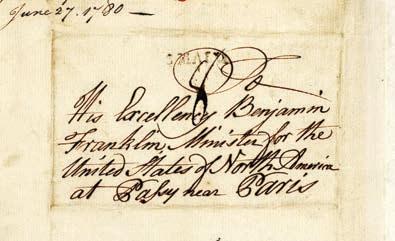 June 27. 1780 —
To
His Excellency Benjamin
Franklin, Minister for the
United States of North America
at Passy near Paris